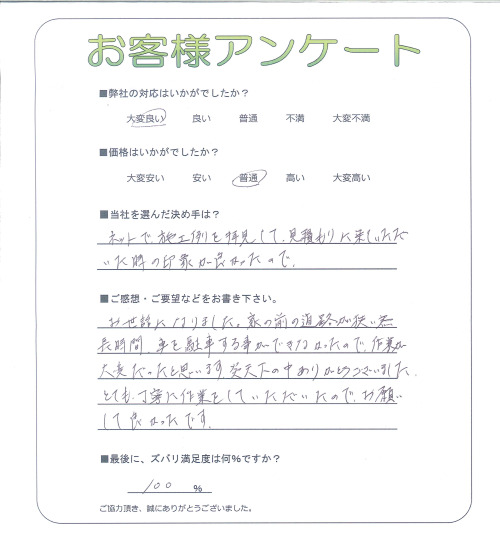 お客様アンケート
■弊社の対応はいかがでしたか？
大変良い 良い 普通 不満 大変不満
■価格はいかがでしたか？
大変安い 安い 普通 高い 大変高い
■当社を選んだ決め手は？
ネットで施工例を拝見して、見積もりに来ていただ
いた時の印象が良かったので。
■ご感想・ご要望などをお書き下さい。
お世話になりました。家の前の道路が狭い為
長時間、車を駐車する事ができなかったので、作業が
大変だったと思います。炎天下の中ありがとうございました。
とても丁寧に作業をしていただいたので、お願い
して良かったです。
■最後に、ズバリ満足度は何%ですか？
100 %
ご協力頂き、誠にありがとうございました。